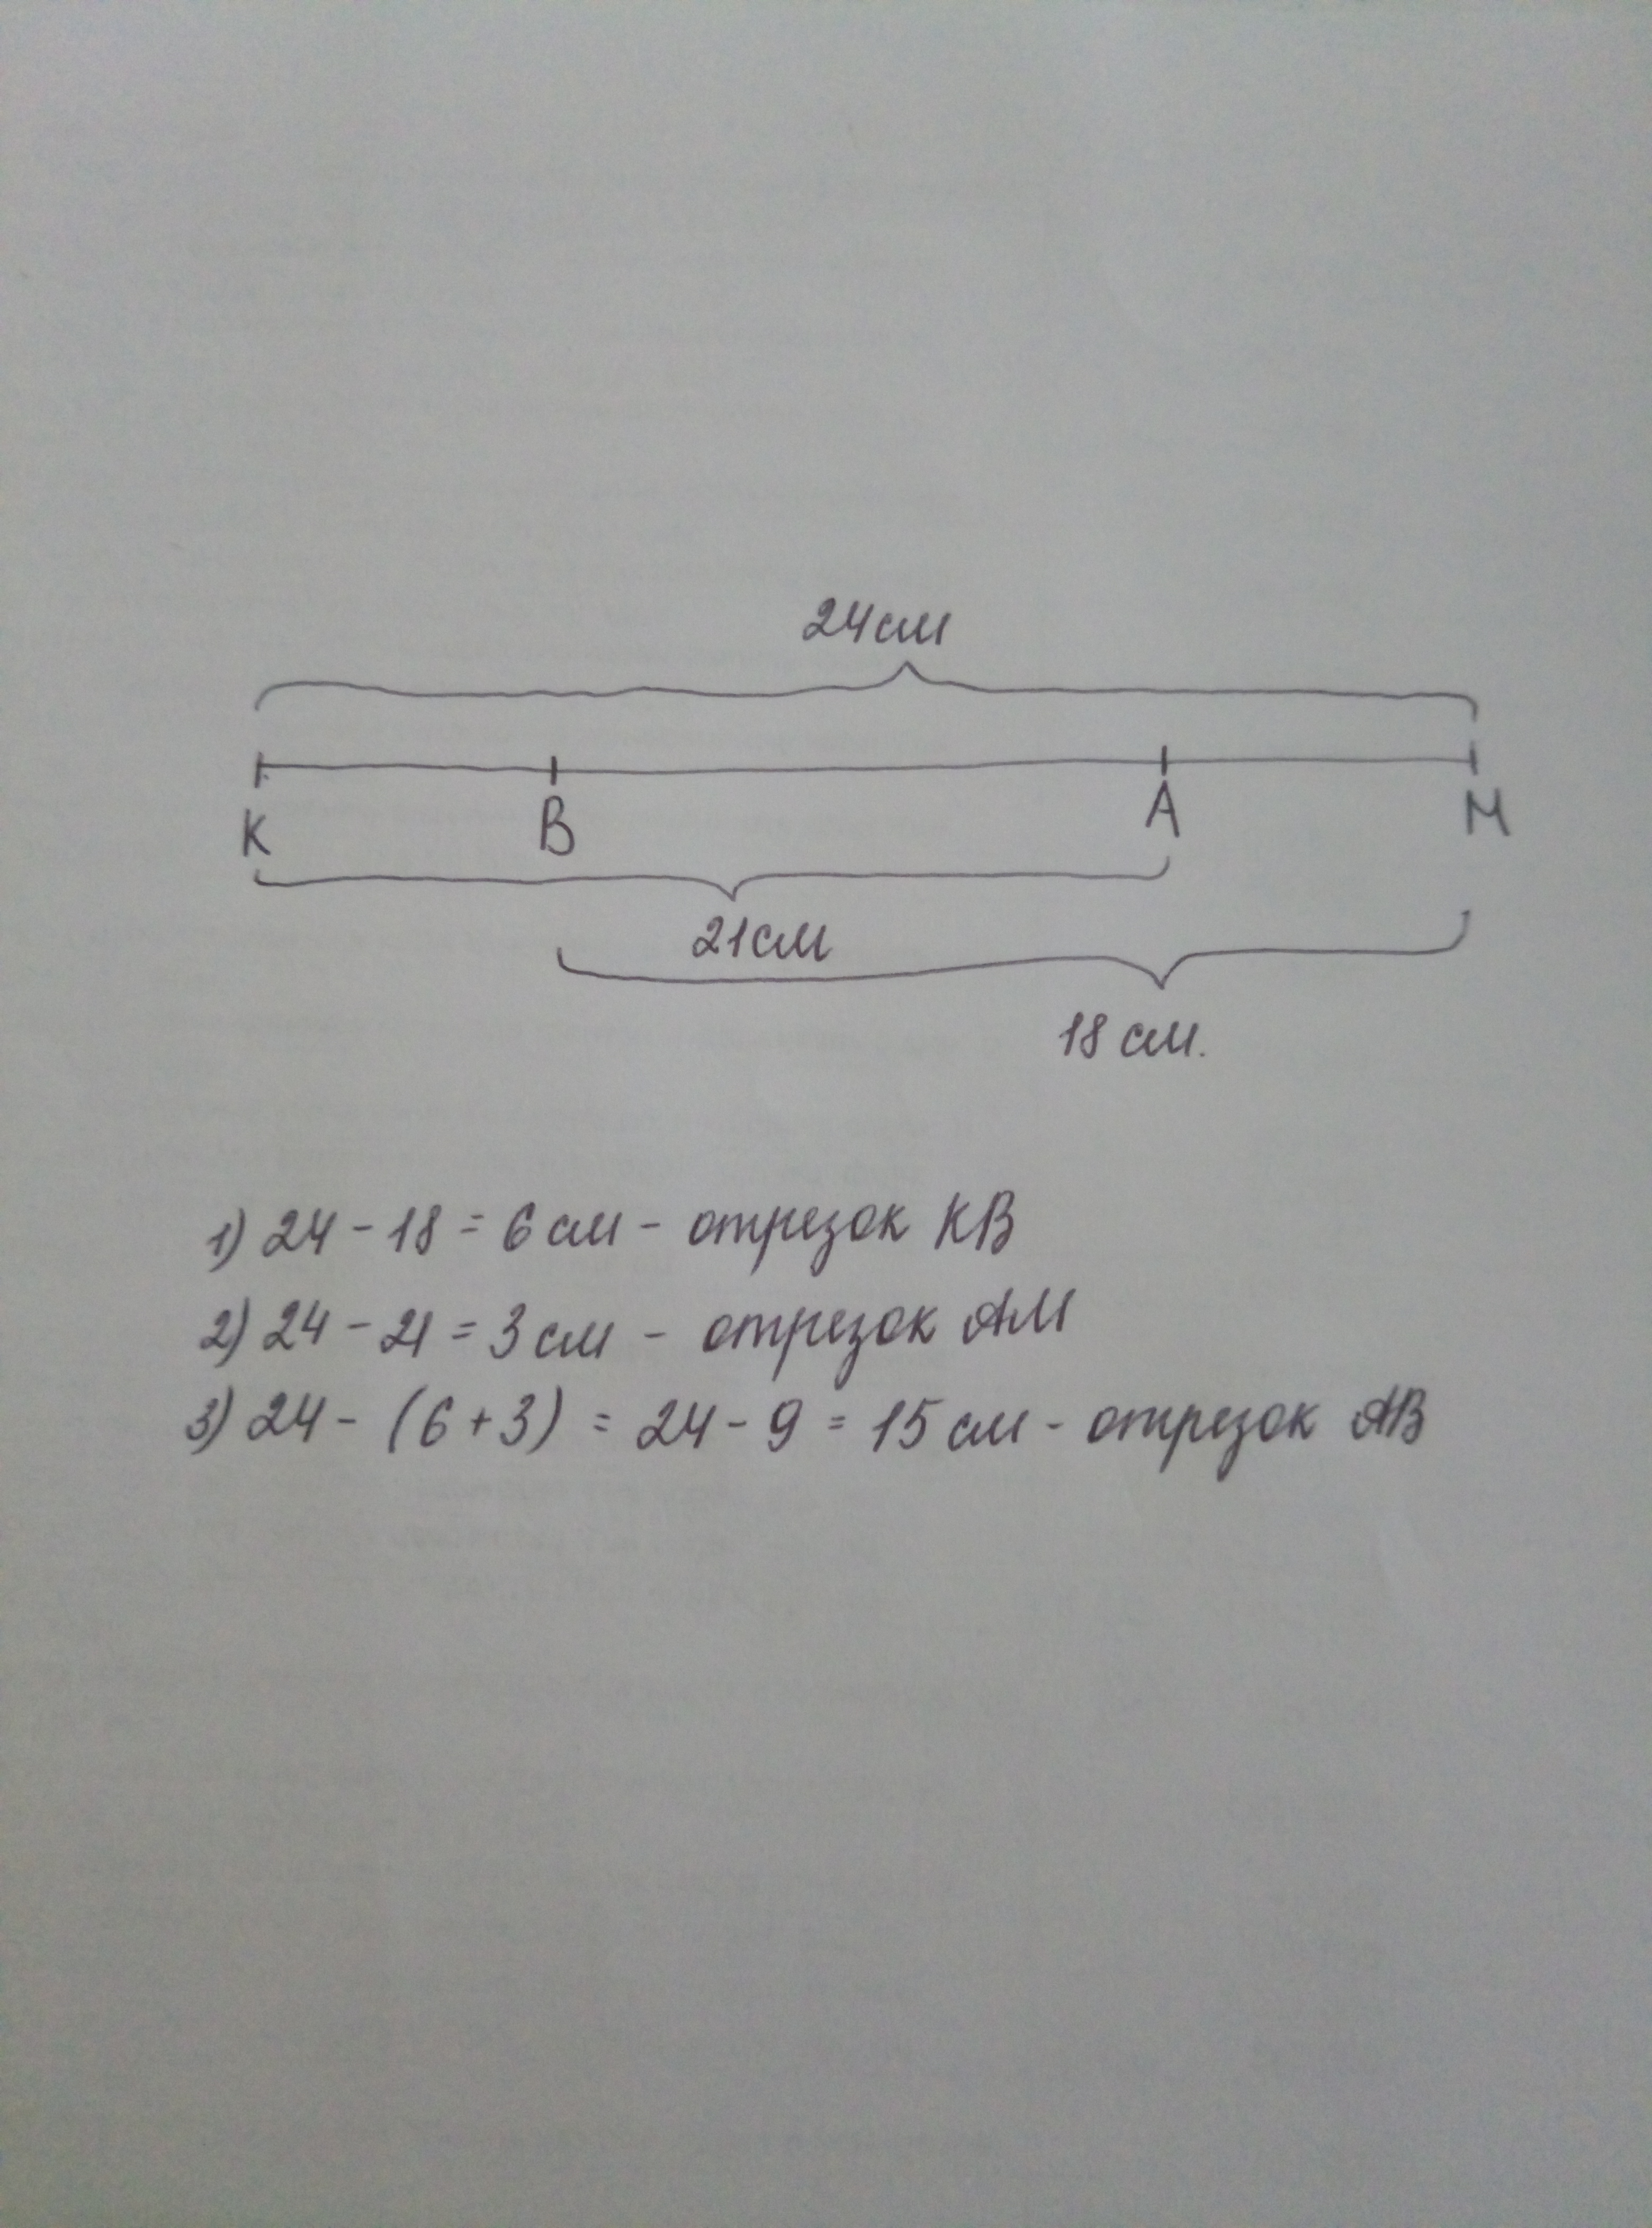 24см
К В А М
21см
18 см.
1) 24 - 18 = 6 см - отрезок КВ
2) 24 - 21 = 3 см - отрезок АМ
3) 24 - (6 + 3) = 24 - 9 = 15 см - отрезок АВ